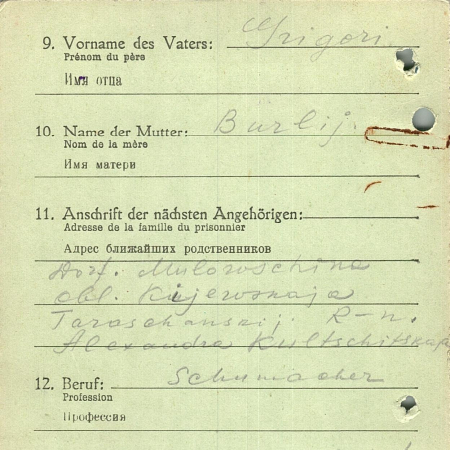 9. Vorname des Vaters: Grigori
Prénom du père
Имя отца
10. Name der Mutter: Burlij.
Nom de la mère
Имя матери
11. Anschrift der nächsten Angehörigen:
Adresse de la famille du prisonnier
Адрес ближайших родственников
Dorf. Mulorowschina
obl. Kijewskaja
Taraschanskij. R-n.
Alexandra Kultschitskaja
12. Beruf: Schumacher
Profession
Профессия